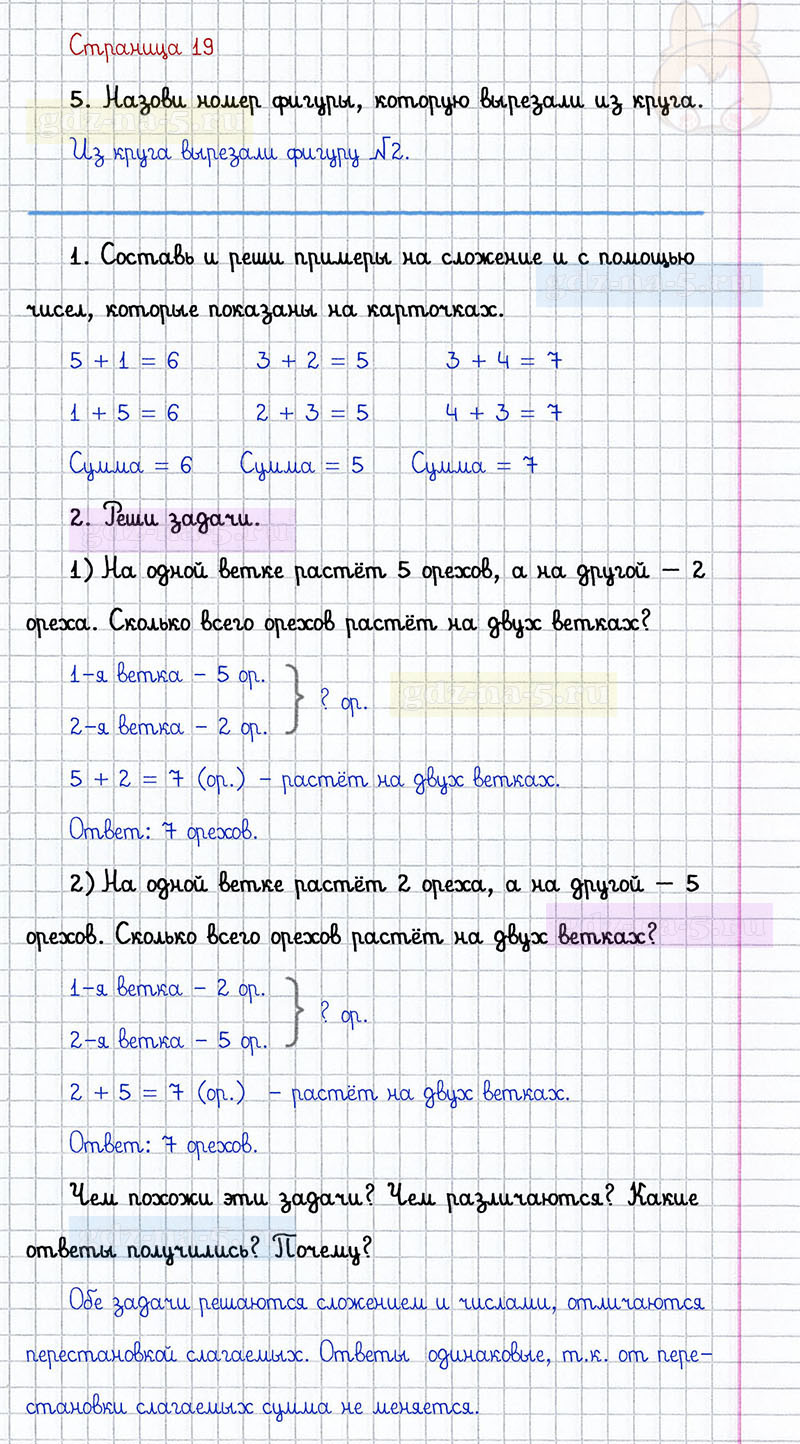 Страница 19
5. Назови номер фигуры, которую вырезали из круга.
gdz-na-5.ru
Из круга вырезали фигуру №2.
1. Составь и реши примеры на сложение и с помощью
gdz-na-5.ru
чисел, которые показаны на карточках.
5 + 1 = 6 3 + 2 = 5 3 + 4 = 7
1 + 5 = 6 2 + 3 = 5 4 + 3 = 7
Сумма = 6 Сумма = 5 Сумма = 7
2. Реши задачи.
gdz-na-5.ru
1) На одной ветке растёт 5 орехов, а на другой – 2
ореха. Сколько всего орехов растёт на двух ветках?
1-я ветка – 5 ор.
? ор.
gdz-na-5.ru
2-я ветка – 2 ор.
5 + 2 = 7 (ор.) – растёт на двух ветках.
Ответ: 7 орехов.
2) На одной ветке растёт 2 ореха, а на другой – 5
орехов. Сколько всего орехов растёт на двух ветках?
gdz-na-5.ru
1-я ветка – 2 ор.
? ор.
2-я ветка – 5 ор.
2 + 5 = 7 (ор.) – растёт на двух ветках.
Ответ: 7 орехов.
Чем похожи эти задачи? Чем различаются? Какие
gdz-na-5.ru
ответы получились? Почему?
Обе задачи решаются сложением и числами, отличаются
перестановкой слагаемых. Ответы одинаковые, т.к. от пере-
становки слагаемых сумма не меняется.